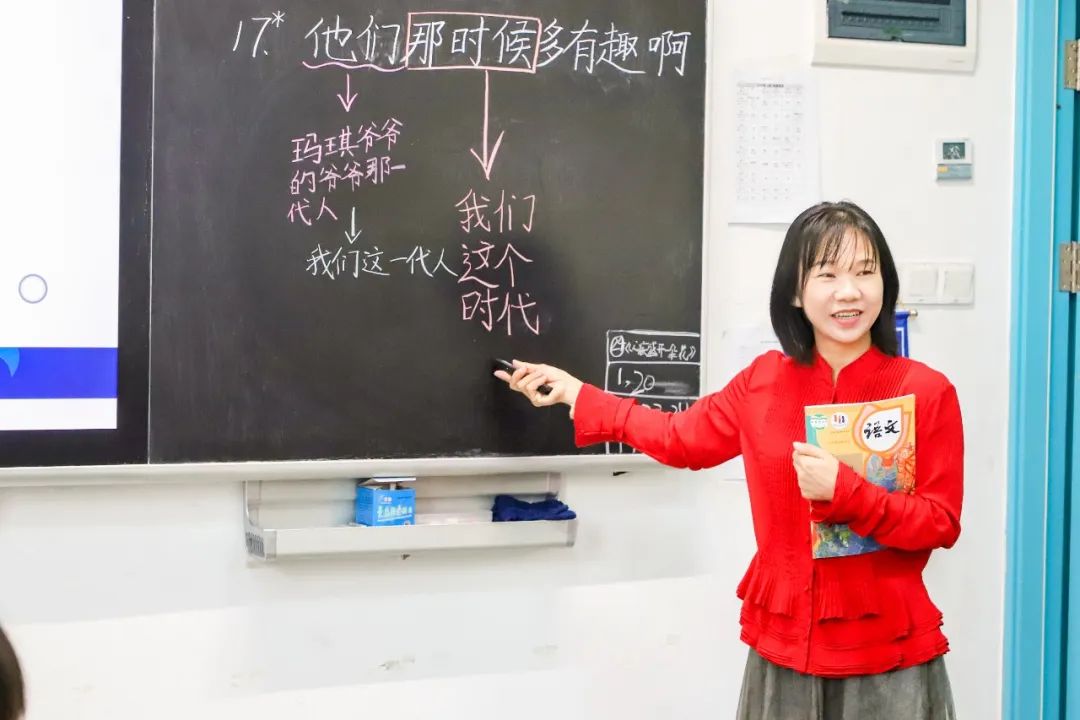 17.* 他们那时候多有趣啊
玛琪爷爷
的爷爷那一
代人
我们这一代人
我们
这个
时代
1、20
语文